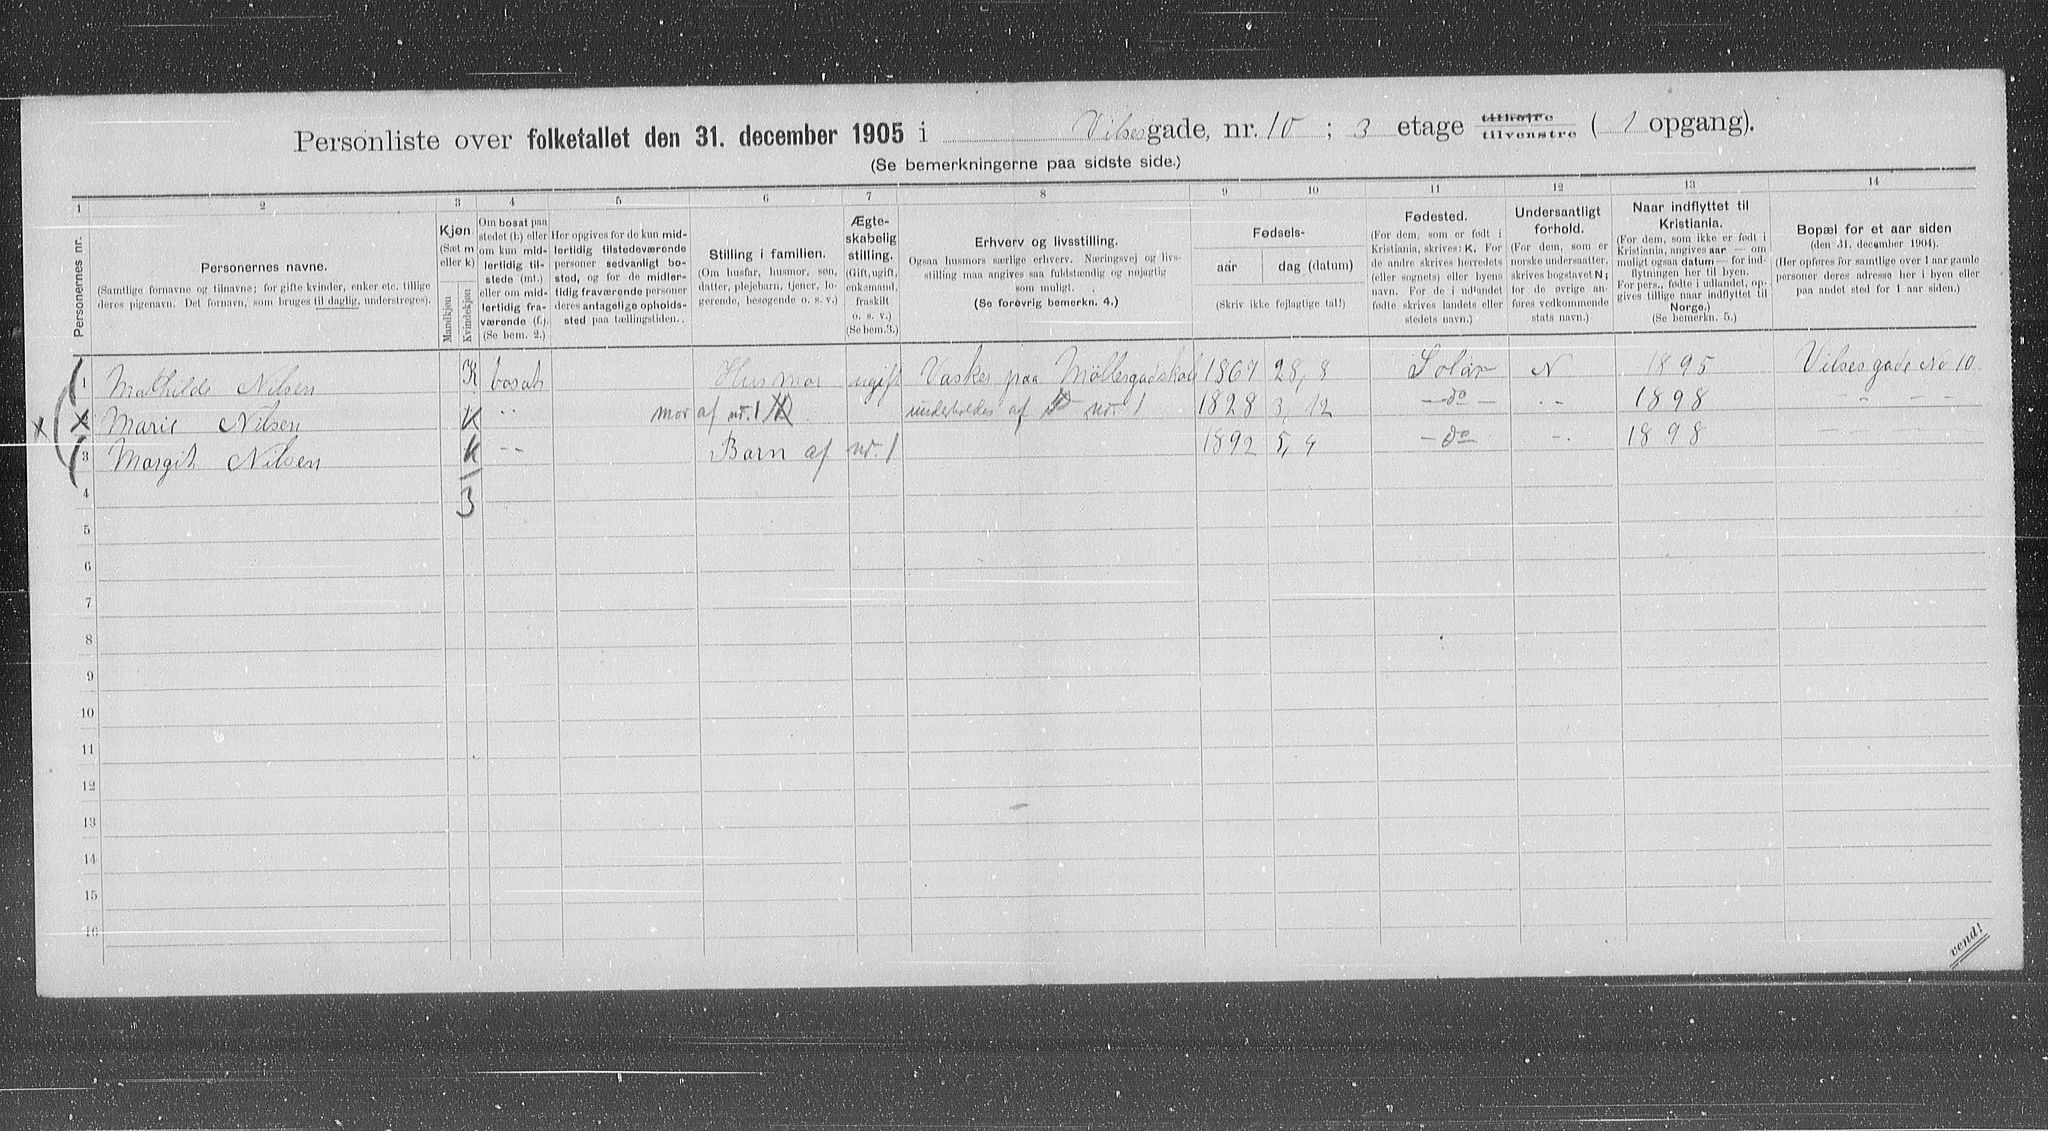 Personliste over folketallet den 31. december 1905 i Vibes gade, nr. 10 ; 3 etage tilhøjre tilvenstre ( 1 opgang).
(Se bemerkningerne paa sidste side.)
1 2 3 4 5 6 7 8 9 10 11 12 13 14
Personernes nr.
Personernes navne.
(Samtlige fornavne og tilnavne; for gifte kvinder, enker etc. tillige
deres pigenavn. Det fornavn, som bruges til daglig, understreges).
Kjøn.
(Sæt m
eller k)
Mandkjøn
Kvindekjøn
Om bosat paa
stedet (b) eller
om kun mid-
lertidig til-
stede (mt.)
eller om mid-
lertidig fra-
værende (f.).
(Se bem. 2.)
Her opgives for de kun mid-
lertidig tilstedeværende
personer sedvanligt bo-
sted, og for de midler-
tidig fraværende personer
deres antagelige opholds-
sted paa tællingstiden.
Stilling i familien.
(Om husfar, husmor, søn,
datter, plejebarn, tjener, lo-
gerende, besøgende o. s. v.)
Ægte-
skabelig
stilling.
(Gift, ugift,
enkemand,
fraskilt
o. s. v.)
(Se bem. 3.)
Erhverv og livsstilling.
Ogsaa husmors særlige erhverv. Næringsvej og livs-
stilling maa angives saa fuldstændig og nøjagtig
som muligt.
(Se forøvrig bemerkn. 4.)
Fødsels-
aar
dag (datum)
(Skriv ikke fejlagtige tal!)
Fødested.
(For dem, som er født i
Kristiania, skrives: K. For
de andre skrives herredets
(eller sognets) eller byens
navn. For de i udlandet
fødte skrives landets eller
stedets navn.)
Undersaatligt
forhold.
(For dem, som er
norske undersaatter,
skrives bogstavet N;
for de øvrige an-
føres vedkommende
stats navn.)
Naar indflyttet til
Kristiania.
(For dem, som ikke er født i
Kristiania, angives aar — om
muligt ogsaa datum — for ind-
flytningen her til byen.
For pers., fødte i udlandet, op-
gives tillige naar indflyttet til
Norge.)
(Se bemerkn. 5.)
Bopæl for et aar siden
(den 31. december 1904).
(Her opføres for samtlige over 1 aar gamle
personer deres adresse her i byen eller
paa andet sted for 1 aar siden.)
1 Mathilde Nilsen K bosat Husmor ugift Vasker paa Möllergadskole 1867 28, 8 Solør N 1895 Vibesgade No 10
x 2 Marie Nilsen K -"- mor af nr. 1 underholdes af nr. 1 1828 3, 12 - do - - - 1898 - " - -
3 Margit Nilsen K -"- Barn af nr. 1 1892 5, 4 - do - - 1898 - - - -
4 3
5
6
7
8
9
10
11
12
13
14
15
16
vend!